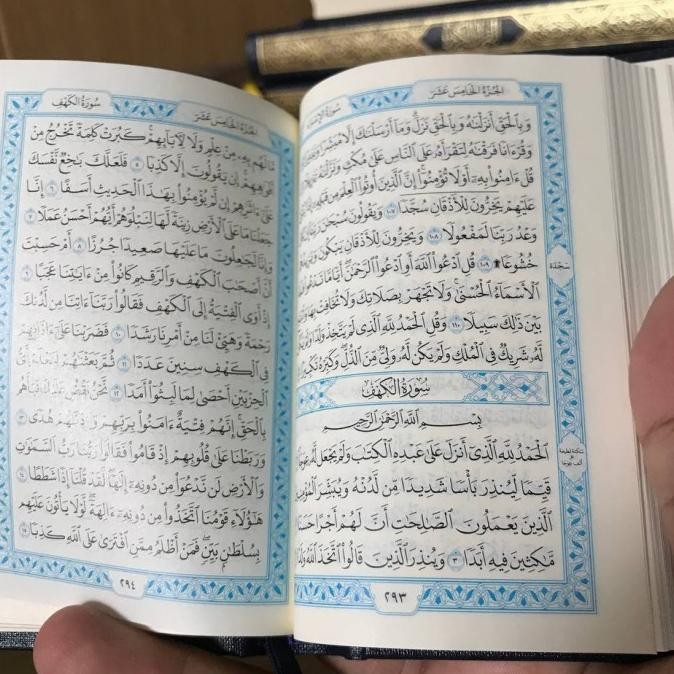 سورة الإسراء
الجزء الخامس عشر
وَبِالْحَقِّ أَنزَلْنَاهُ وَبِالْحَقِّ نَزَلَ وَمَا أَرْسَلْنَاكَ إِلَّا مُبَشِّرًا
وَقُرْءَانًا فَرَقْنَاهُ لِتَقْرَأَهُ عَلَى النَّاسِ عَلَىٰ مُكْثٍ وَنَزَّلْنَاهُ
قُلْ ءَامِنُوا بِهِ أَوْ لَا تُؤْمِنُوا إِنَّ الَّذِينَ أُوتُوا الْعِلْمَ مِن قَبْلِهِ
عَلَيْهِمْ يَخِرُّونَ لِلْأَذْقَانِ سُجَّدًا ١٠٧ وَيَقُولُونَ سُبْحَانَ رَبِّنَا
وَعْدُ رَبِّنَا لَمَفْعُولًا ١٠٨ وَيَخِرُّونَ لِلْأَذْقَانِ يَبْكُونَ
خُشُوعًا ۩ ١٠٩ قُلِ ادْعُوا اللَّهَ أَوِ ادْعُوا الرَّحْمَٰنَ أَيًّا مَّا تَدْعُوا
الْأَسْمَاءُ الْحُسْنَىٰ وَلَا تَجْهَرْ بِصَلَاتِكَ وَلَا تُخَافِتْ بِهَا
بَيْنَ ذَٰلِكَ سَبِيلًا ١١٠ وَقُلِ الْحَمْدُ لِلَّهِ الَّذِي لَمْ يَتَّخِذْ وَلَدًا
لَّهُ شَرِيكٌ فِي الْمُلْكِ وَلَمْ يَكُن لَّهُ وَلِيٌّ مِّنَ الذُّلِّ وَكَبِّرْهُ تَكْبِيرًا
سُورَةُ الْكَهْفِ
بِسْمِ اللَّهِ الرَّحْمَٰنِ الرَّحِيمِ
الْحَمْدُ لِلَّهِ الَّذِي أَنزَلَ عَلَىٰ عَبْدِهِ الْكِتَابَ وَلَمْ يَجْعَل لَّهُ
قَيِّمًا لِّيُنذِرَ بَأْسًا شَدِيدًا مِّن لَّدُنْهُ وَيُبَشِّرَ الْمُؤْمِنِينَ
الَّذِينَ يَعْمَلُونَ الصَّالِحَاتِ أَنَّ لَهُمْ أَجْرًا حَسَنًا
مَّاكِثِينَ فِيهِ أَبَدًا ٣ وَيُنذِرَ الَّذِينَ قَالُوا اتَّخَذَ اللَّهُ وَلَدًا
سجدة
٢٩٣
الجزء الخامس عشر
سورة الكهف
مَّا لَهُم بِهِ مِنْ عِلْمٍ وَلَا لِآبَائِهِمْ كَبُرَتْ كَلِمَةً تَخْرُجُ مِنْ
أَفْوَاهِهِمْ إِن يَقُولُونَ إِلَّا كَذِبًا ٥ فَلَعَلَّكَ بَاخِعٌ نَّفْسَكَ
عَلَىٰ ءَاثَارِهِمْ إِن لَّمْ يُؤْمِنُوا بِهَٰذَا الْحَدِيثِ أَسَفًا ٦ إِنَّا
جَعَلْنَا مَا عَلَى الْأَرْضِ زِينَةً لَّهَا لِنَبْلُوَهُمْ أَيُّهُمْ أَحْسَنُ عَمَلًا ٧
وَإِنَّا لَجَاعِلُونَ مَا عَلَيْهَا صَعِيدًا جُرُزًا ٨ أَمْ حَسِبْتَ
أَنَّ أَصْحَابَ الْكَهْفِ وَالرَّقِيمِ كَانُوا مِنْ ءَايَاتِنَا عَجَبًا ٩
إِذْ أَوَى الْفِتْيَةُ إِلَى الْكَهْفِ فَقَالُوا رَبَّنَا ءَاتِنَا مِن لَّدُنكَ
رَحْمَةً وَهَيِّئْ لَنَا مِنْ أَمْرِنَا رَشَدًا ١٠ فَضَرَبْنَا عَلَىٰ ءَاذَانِهِمْ
فِي الْكَهْفِ سِنِينَ عَدَدًا ١١ ثُمَّ بَعَثْنَاهُمْ لِنَعْلَمَ أَيُّ
الْحِزْبَيْنِ أَحْصَىٰ لِمَا لَبِثُوا أَمَدًا ١٢ نَّحْنُ نَقُصُّ عَلَيْكَ نَبَأَهُم
بِالْحَقِّ إِنَّهُمْ فِتْيَةٌ ءَامَنُوا بِرَبِّهِمْ وَزِدْنَاهُمْ هُدًى ١٣
وَرَبَطْنَا عَلَىٰ قُلُوبِهِمْ إِذْ قَامُوا فَقَالُوا رَبُّنَا رَبُّ السَّمَاوَاتِ
وَالْأَرْضِ لَن نَّدْعُوَ مِن دُونِهِ إِلَٰهًا لَّقَدْ قُلْنَا إِذًا شَطَطًا ١٤
هَٰؤُلَاءِ قَوْمُنَا اتَّخَذُوا مِن دُونِهِ ءَالِهَةً لَّوْلَا يَأْتُونَ عَلَيْهِم
بِسُلْطَانٍ بَيِّنٍ فَمَنْ أَظْلَمُ مِمَّنِ افْتَرَىٰ عَلَى اللَّهِ كَذِبًا ١٥
٢٩٤